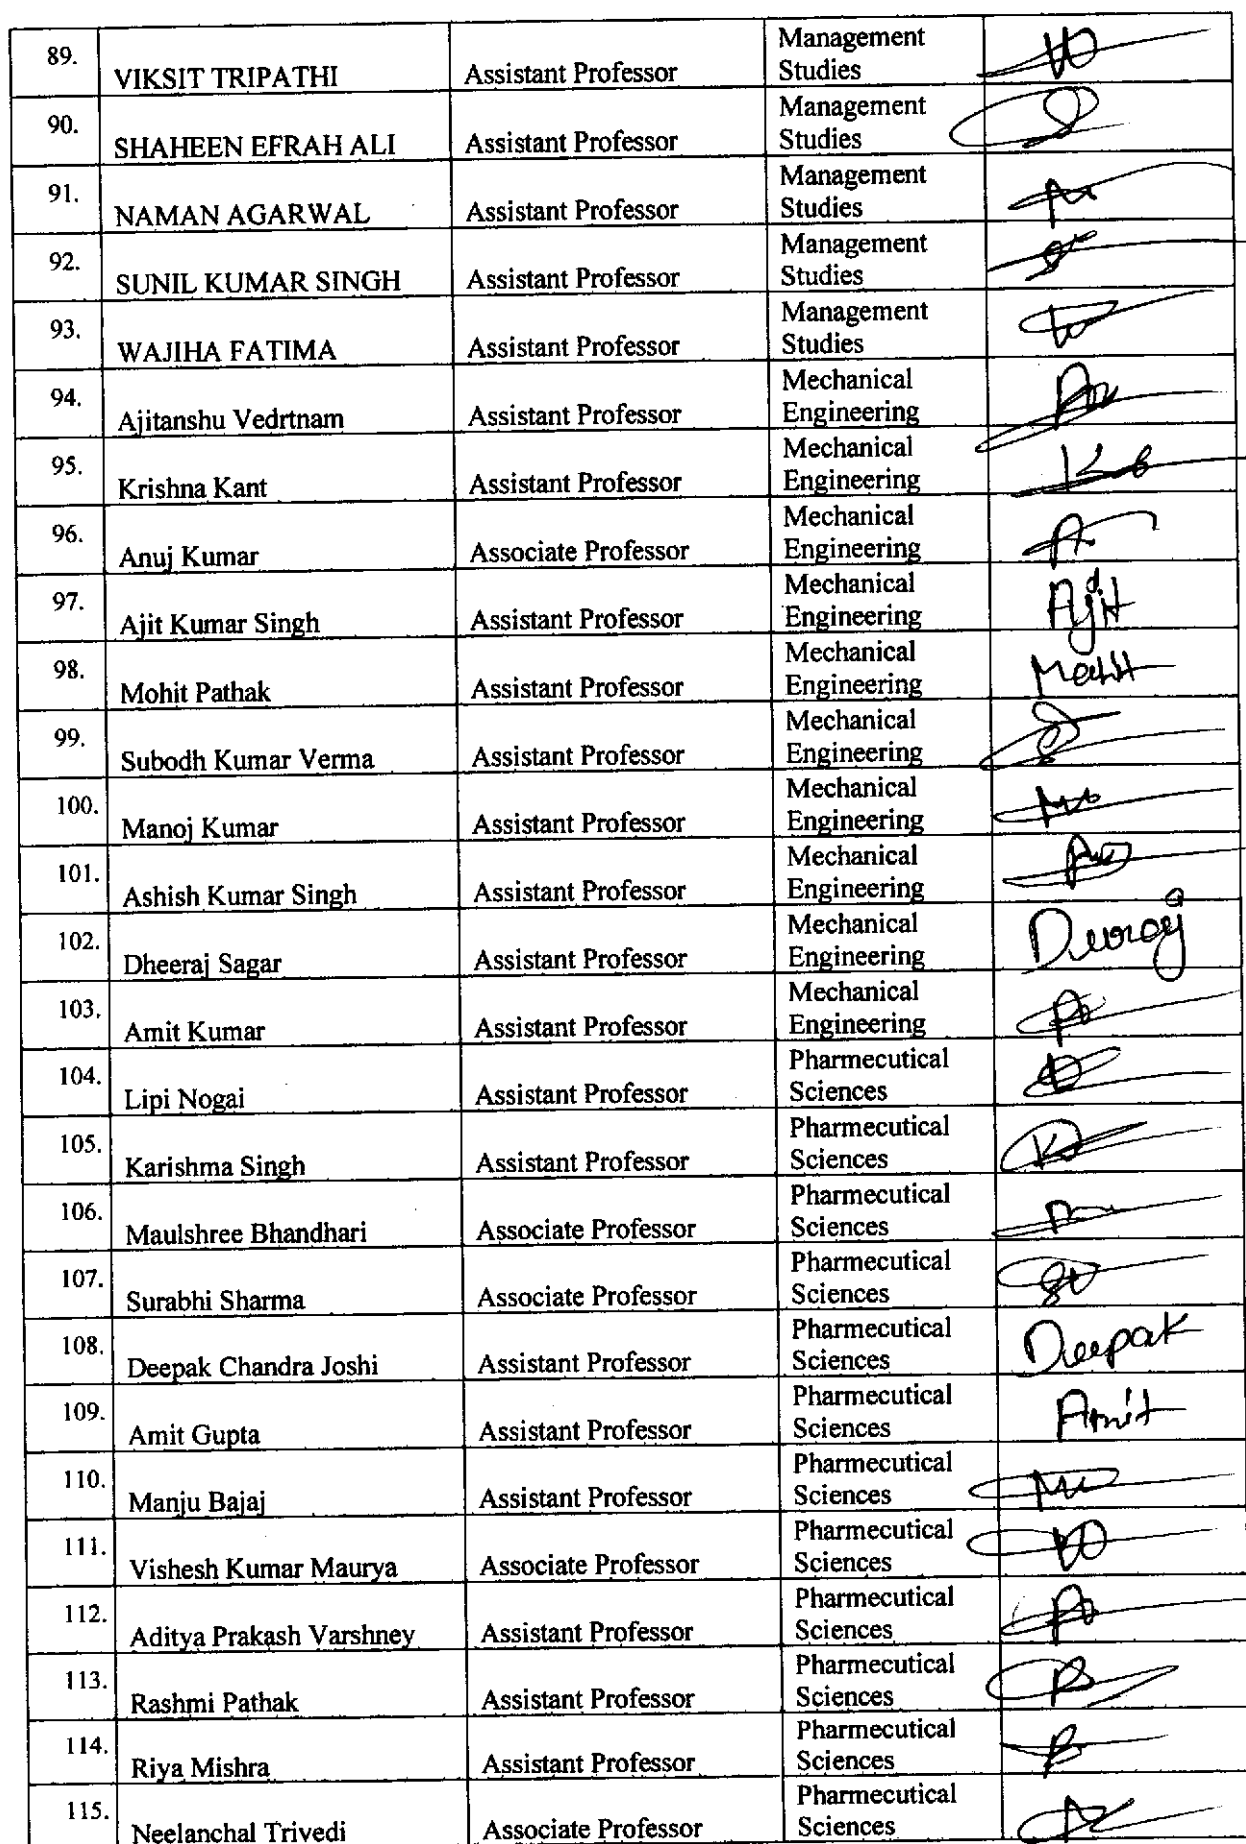 89. VIKSIT TRIPATHI Assistant Professor Management Studies
90. SHAHEEN EFRAH ALI Assistant Professor Management Studies
91. NAMAN AGARWAL Assistant Professor Management Studies
92. SUNIL KUMAR SINGH Assistant Professor Management Studies
93. WAJIHA FATIMA Assistant Professor Management Studies
94. Ajitanshu Vedrtnam Assistant Professor Mechanical Engineering
95. Krishna Kant Assistant Professor Mechanical Engineering
96. Anuj Kumar Associate Professor Mechanical Engineering
97. Ajit Kumar Singh Assistant Professor Mechanical Engineering Ajit
98. Mohit Pathak Assistant Professor Mechanical Engineering Mohit
99. Subodh Kumar Verma Assistant Professor Mechanical Engineering
100. Manoj Kumar Assistant Professor Mechanical Engineering
101. Ashish Kumar Singh Assistant Professor Mechanical Engineering
102. Dheeraj Sagar Assistant Professor Mechanical Engineering
103. Amit Kumar Assistant Professor Mechanical Engineering
104. Lipi Nogai Assistant Professor Pharmecutical Sciences
105. Karishma Singh Assistant Professor Pharmecutical Sciences
106. Maulshree Bhandhari Associate Professor Pharmecutical Sciences
107. Surabhi Sharma Associate Professor Pharmecutical Sciences
108. Deepak Chandra Joshi Assistant Professor Pharmecutical Sciences Deepak
109. Amit Gupta Assistant Professor Pharmecutical Sciences Amit
110. Manju Bajaj Assistant Professor Pharmecutical Sciences
111. Vishesh Kumar Maurya Associate Professor Pharmecutical Sciences
112. Aditya Prakash Varshney Assistant Professor Pharmecutical Sciences
113. Rashmi Pathak Assistant Professor Pharmecutical Sciences
114. Riya Mishra Assistant Professor Pharmecutical Sciences
115. Neelanchal Trivedi Associate Professor Pharmecutical Sciences